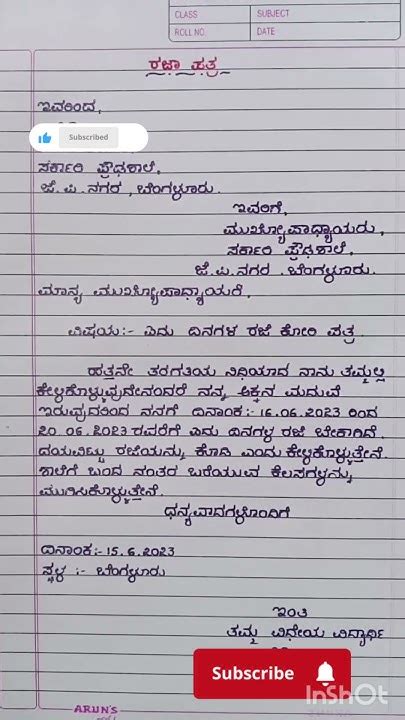 CLASS SUBJECT
ROLL NO. DATE
ರಜಾ ಪತ್ರ
ಇವರಿಂದ,
Subscribed
ಸರ್ಕಾರಿ ಪ್ರೌಢಶಾಲೆ,
ಜೆ.ಪಿ.ನಗರ, ಬೆಂಗಳೂರು.
ಇವರಿಗೆ,
ಮುಖ್ಯೋಪಾಧ್ಯಾಯರು,
ಸರ್ಕಾರಿ ಪ್ರೌಢಶಾಲೆ,
ಜೆ.ಪಿ.ನಗರ. ಬೆಂಗಳೂರು.
ಮಾನ್ಯ ಮುಖ್ಯೋಪಾಧ್ಯಾಯರೆ,
ವಿಷಯ:- ಐದು ದಿನಗಳ ರಜೆ ಕೋರಿ ಪತ್ರ.
ಹತ್ತನೇ ತರಗತಿಯ ವಿಧಿಯಾದ ನಾನು ತಮ್ಮಲ್ಲಿ
ಕೇಳಿಕೊಳ್ಳುವುದೇನಂದರೆ ನನ್ನ ಅಕ್ಕನ ಮದುವೆ
ಇರುವುದರಿಂದ ನನಗೆ ದಿನಾಂಕ:- 16.06.2023 ರಿಂದ
20.06.2023 ರವರೆಗೆ ಐದು ದಿನಗಳ ರಜೆ ಬೇಕಾಗಿದೆ.
ದಯವಿಟ್ಟು ರಜೆಯನ್ನು ಕೊಡಿ ಎಂದು ಕೇಳಿಕೊಳ್ಳುತ್ತೇನೆ.
ಶಾಲೆಗೆ ಬಂದ ನಂತರ ಬರೆಯುವ ಕೆಲಸಗಳನ್ನು
ಮುಗಿಸಿಕೊಳ್ಳುತ್ತೇನೆ.
ಧನ್ಯವಾದಗಳೊಂದಿಗೆ
ದಿನಾಂಕ:- 15.6.2023
ಸ್ಥಳ :- ಬೆಂಗಳೂರು
ಇಂತಿ
ತಮ್ಮ ವಿಧೇಯ ವಿದ್ಯಾರ್ಥಿ
Subscribe
InShOt
ARUN'S